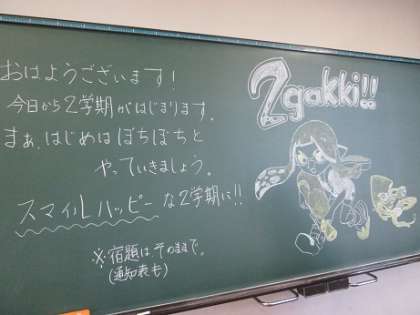 おはようございます!
今日から2学期がはじまります。
まぁ、はじめはぼちぼちと
やっていきましょう。
スマイルハッピーな2学期に!!
※宿題はそのままで。
(通知表も)
2gakki!!